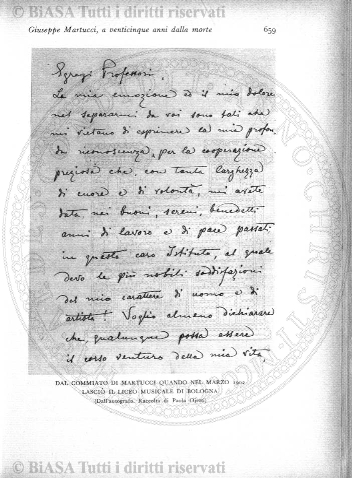 © BiASA Tutti i diritti riservati
Giuseppe Martucci, a venticinque anni dalla morte 659
Egregi Professori,
La mia emozione ed il mio dolore
nel separarmi da voi sono tali che
mi vietano di esprimere la mia profon-
da riconoscenza, per la cooperazione
preziosa che, con tanta larghezza
di cuore e di volontà, mi avete
data nei buoni, sereni, benedetti
anni di lavoro e di pace passati
in questo caro Istituto, al quale
devo le più nobili soddisfazioni
del mio carattere di uomo e di
artista! Voglio almeno dichiarare
che, qualunque possa essere
il corso venturo della mia vita,
DAL COMMIATO DI MARTUCCI QUANDO NEL MARZO 1902
LASCIÒ IL LICEO MUSICALE DI BOLOGNA
(Dall'autografo. Raccolta di Paola Ojetti)
© BiASA Tutti i diritti riservati